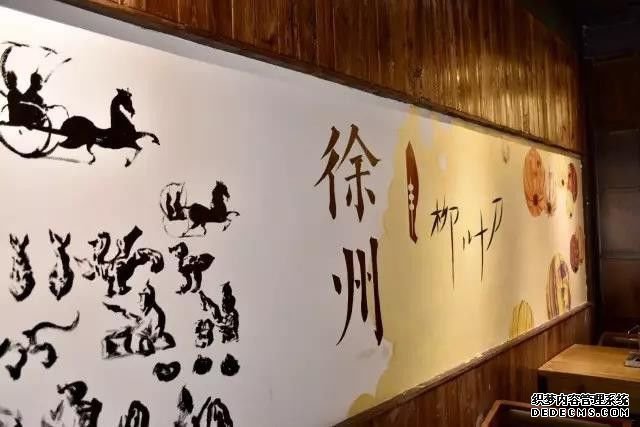 徐州
柳
织梦内容管理系统
DEDECMS.COM